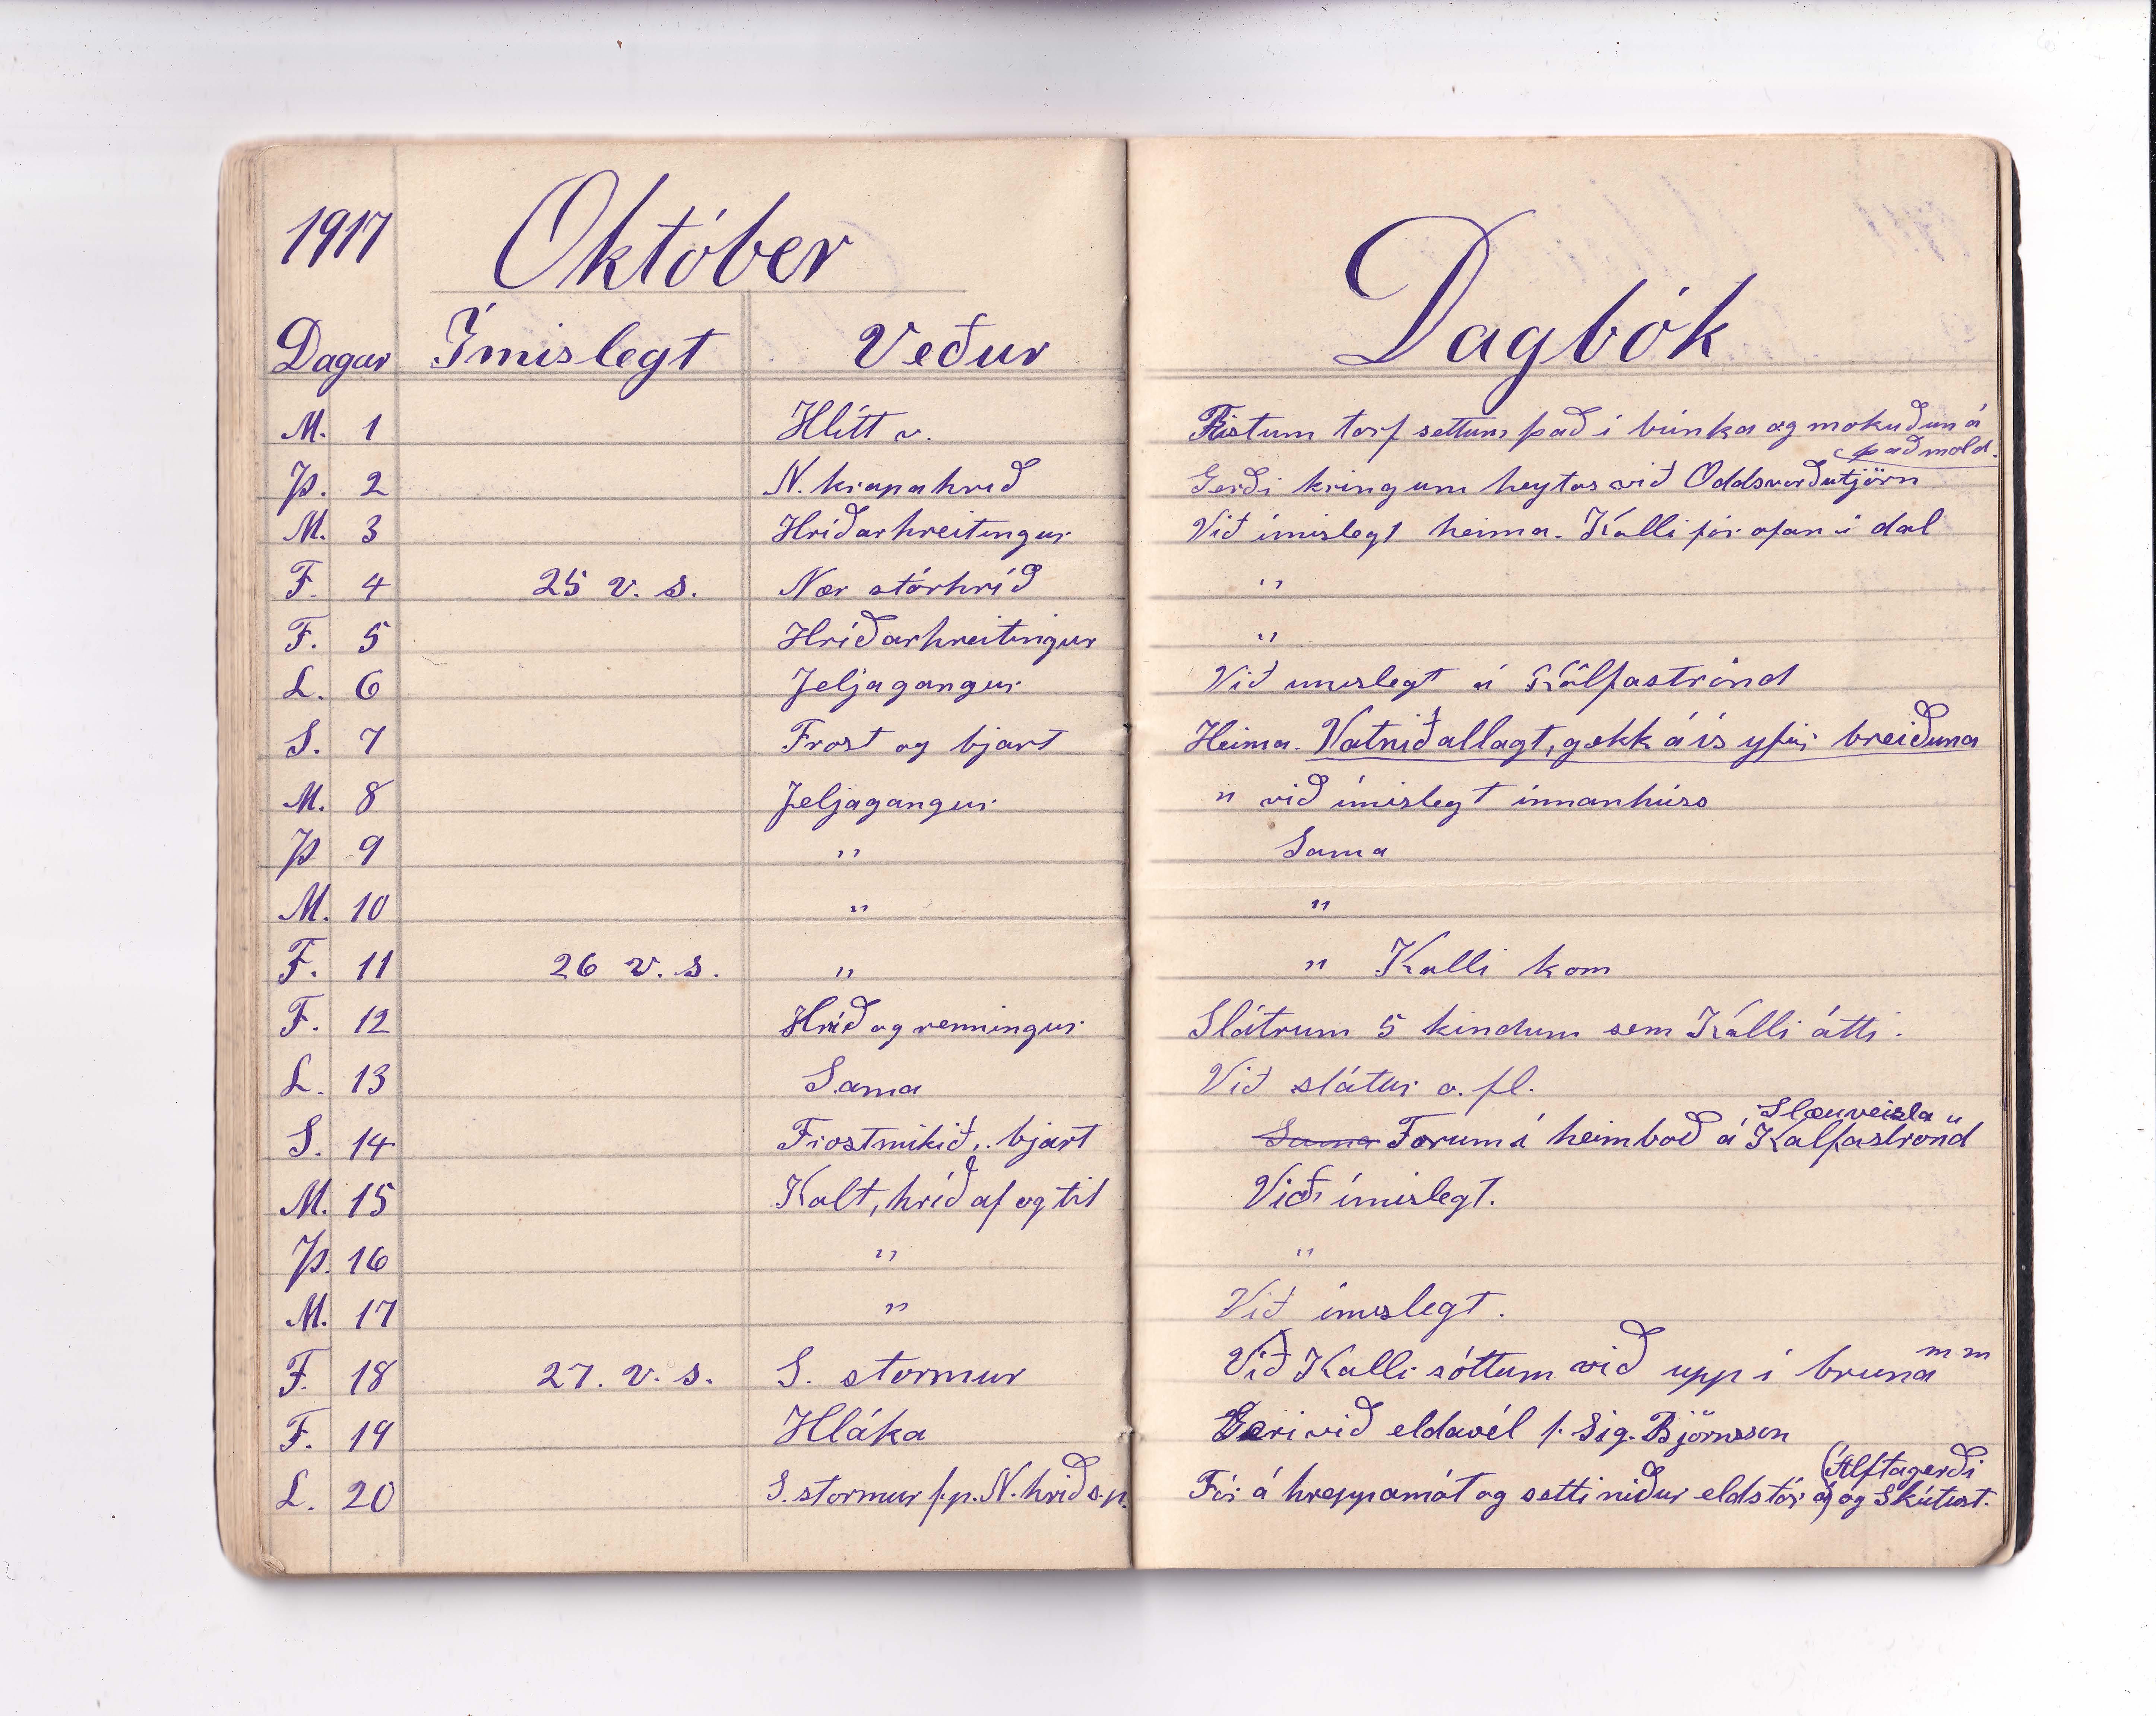 1917 Október
Dagur Ímislegt Veður
M. 1 Hlítt v.
Þ. 2 N. krapahríð
M. 3 Hríðarhreitingur
F. 4 25 v. s. Nær stórhríð
F. 5 Hríðarhreitingur
L. 6 Jeljagangur
S. 7 Frost og bjart
M. 8 Jeljagangur
Þ 9 "
M. 10 "
F. 11 26 v. s. "
F. 12 Hríð og renningur
L. 13 Sama
S. 14 Frostmikið, bjart
M. 15 Kalt, hríð af og til
Þ. 16 "
M. 17 "
F. 18 27. v. s. S. stormur
F. 19 Hláka
L. 20 S. stormur f.p. N. hríð s.p.
Dagbók
Ristum torf settum það í búnka og mokuðum á
það mold.
Gerði kring um heytos við Oddsvörðutjörn
Við ímislegt heima. Kalli fór ofan í dal
"
"
Við ímislegt á Kálfaströnd
Heima. Vatnið allagt, gekk á ís yfir breiðuna
" við ímislegt innanhúss
Sama
"
" Kalli kom
Slátrum 5 kindum sem Kalli átti.
Við slátur o. fl.
Slæuveisla
Sama Forum í heimboð á Kálfaströnd
Við ímislegt.
"
Við ímislegt.
Við Kalli sóttum við upp í bruna m m
Geri við eldavél f. Sig. Björnsson
(Álftagerði
Fór á hreppamót og setti niður eldstór á) og Skútust.